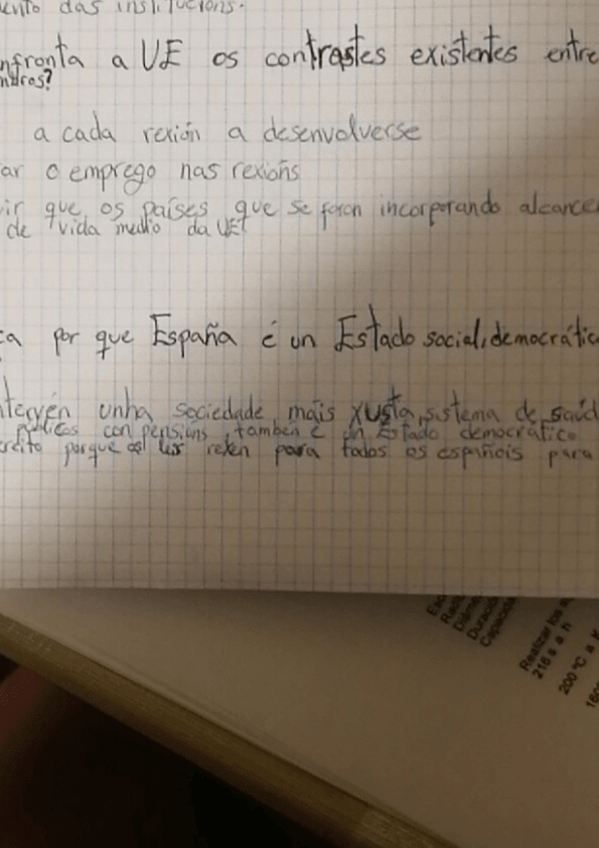 ento das institucións.
nfronta a UE os contrastes existentes entre
mbros?
a cada rexión a desenvolverse
ar o emprego nas rexións
ir que os países que se foron incorporando alcance
de vida medio da UE
ca por que España é un Estado social, democrátic
terven unha sociedade mais xusta, sistema de saúd
públicos con pensións, tamben é un Estado democrático
reito porque as leis rexen para todos os españois para
Realizar los s
216 s a h
200 °C a K